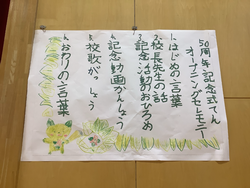 50周年記念式てん
オープニングセレモニー
1、はじめの言葉
2、校長先生の話
3、記念活動のおひろめ
4、記念動画かんしょう
5、校歌がっしょう
6、おわりの言葉